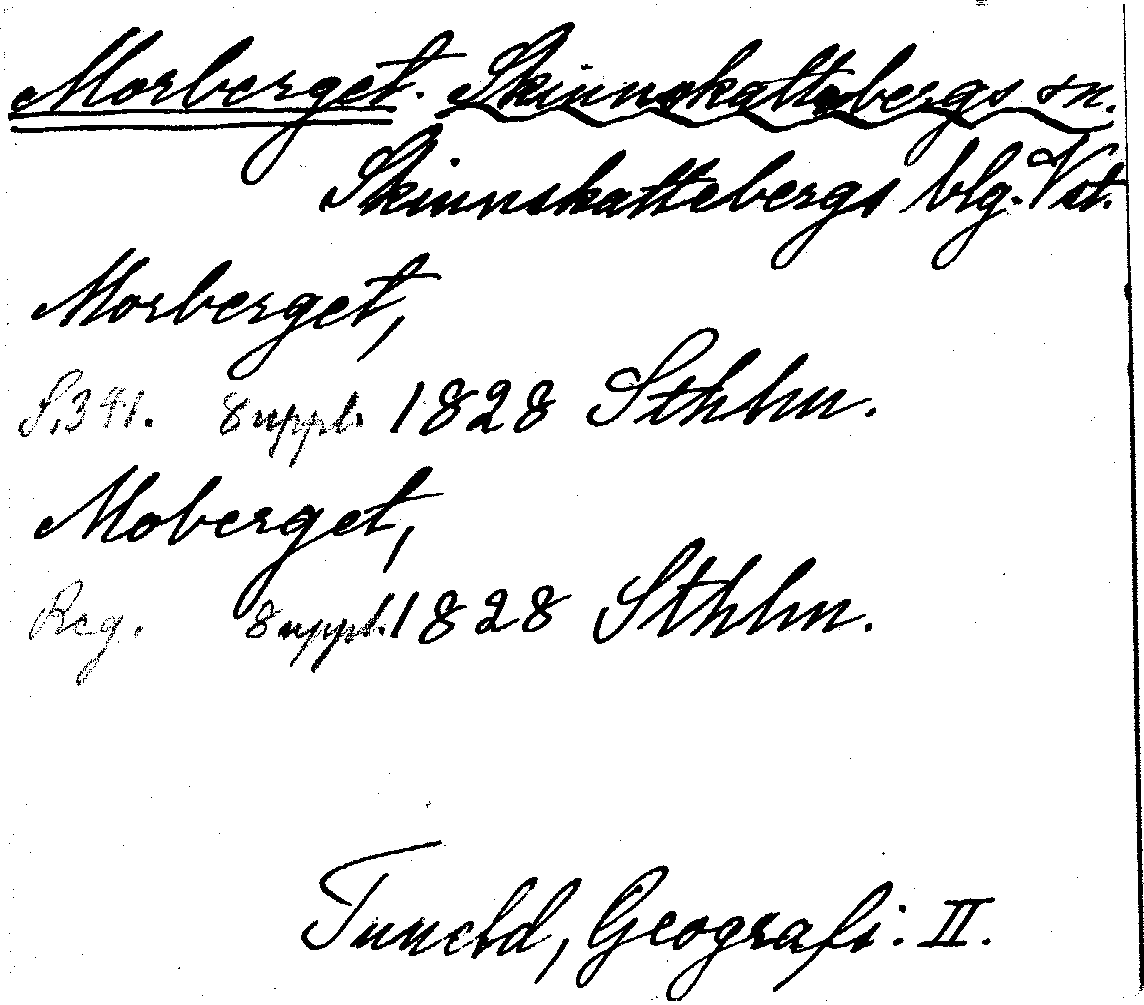 Morberget. Skinnskattebergs sn.
Skinnskattebergs blg. Vstm.
Morberget,
S. 391. Suppl. 1828 Sthlm.
Moberget,
Reg. Suppl. 1828 Sthlm.
Tuneld, Geografi. II.